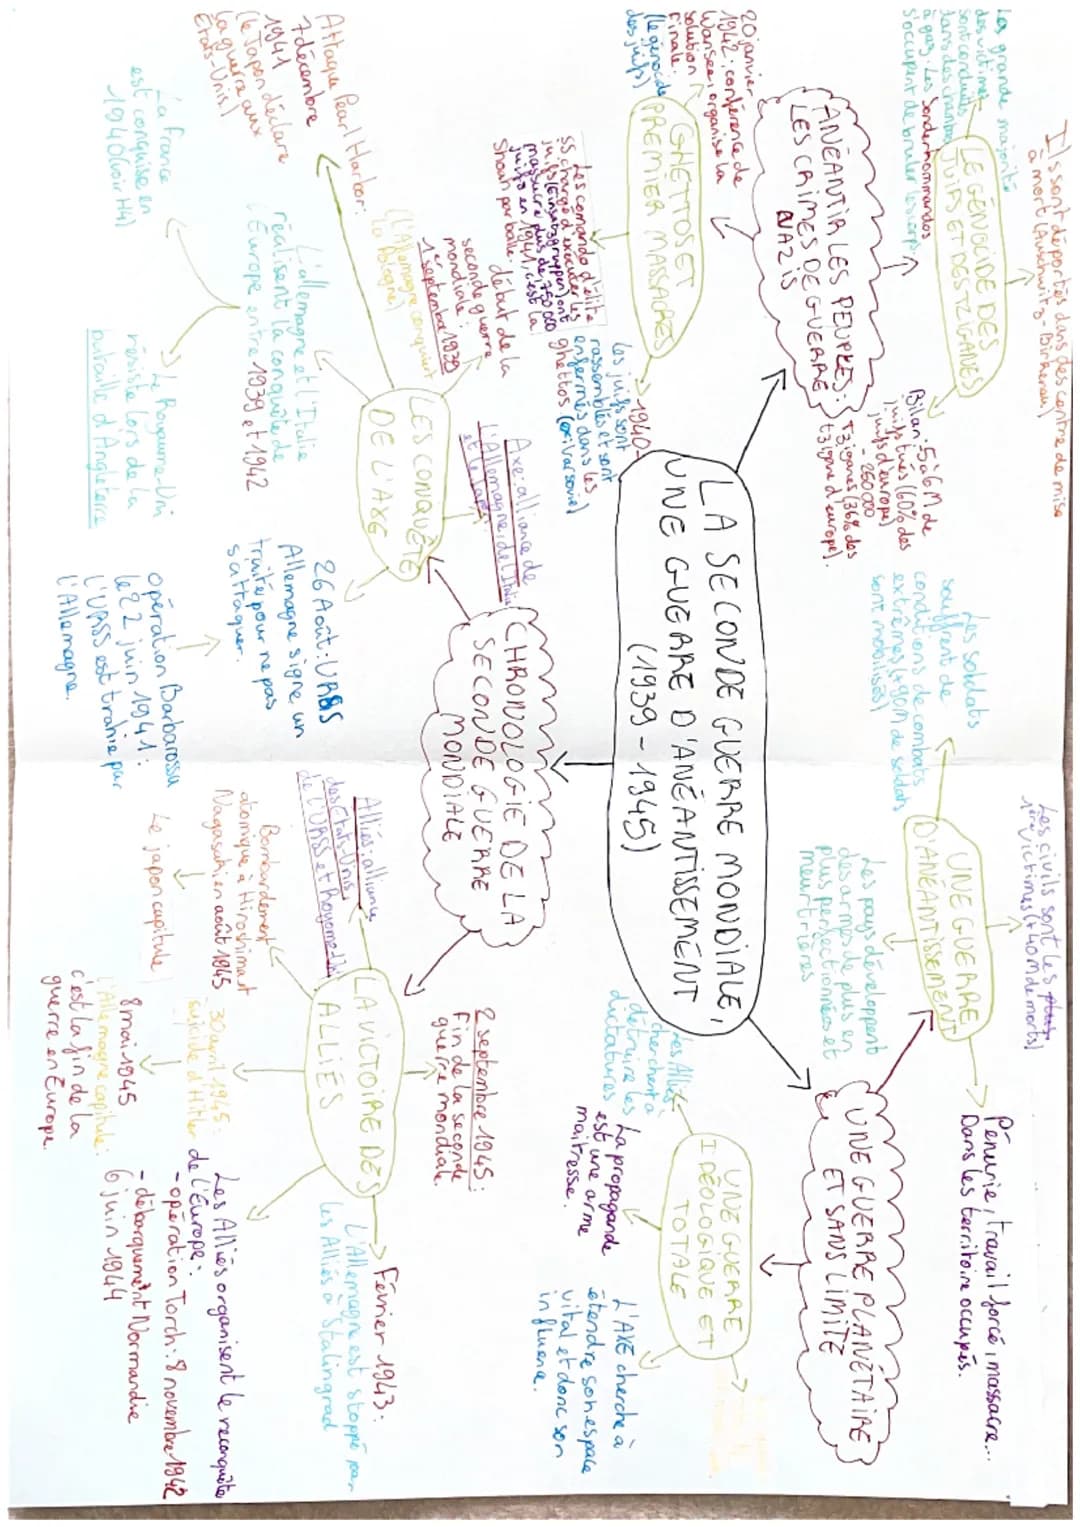 LA SECONDE GUERRE MONDIALE,
UNE GUERRE D'ANÉANTISSEMENT
(1939-1945)
ANÉANTIR LES PEUPLES :
LES CRIMES DE GUERRE
NAZIS
LE GÉNOCIDE DES
JUIFS ET DES TZIGANES
Ils sont déportés dans des centre de mise
à mort (Auschwitz-Birkenau)
La grande majorité
des victimes
sont conduites
dans des chambres
à gaz. Les Sonderkommandos
s'occupent de bruler les corps.
Bilan : 5 à 6M de
juifs tués (60% des
juifs d'europe)
- 250 000
Tziganes (36% des
tzigane d'europe).
GHETTOS ET
PREMIER MASSACRES
20 janvier
1942 : conférence de
Wansee, organise la
solution
Finale.
(le génocide
des juifs)
Les comando d'élite
ss chargé d'executer les
juifs (Einsatzgruppen) ont
massacré plus de 750 000
juifs en 1941, c'est la
Shoah par balle.
1940 -
Les juifs sont
rassemblés et sont
enfermés dans les
ghettos (ex: Varsovie)
UNE GUERRE PLANÉTAIRE
ET SANS LIMITE
UNE GUERRE
D'ANÉANTISSEMENT
Les civils sont les
1ère victimes (+40M de morts)
Les soldats
souffrent de
conditions de combats
extrêmes (+90M de soldats
sont mobilisés)
Les pays développent
des armes de plus en
plus perfectionnées et
meurtrières
Pénurie, travail forcé, massacre...
Dans les territoire occupés.
UNE GUERRE
IDÉOLOGIQUE ET
TOTALE
Les Alliés
cherchent à
détruire les
dictatures
La propagande
est une arme
maîtresse.
L'AXE cherche à
étendre son espace
vital et donc son
influence.
CHRONOLOGIE DE LA
SECONDE GUERRE
MONDIALE
LES CONQUÊTE
DE L'AXE
Axe : alliance de
l'Allemagne, de l'Italie
et le Japon.
début de la
seconde guerre
mondiale :
1er septembre 1939
(L'Allemagne conquiert
la Pologne)
Attaque Pearl Harbor :
7 décembre
1941
(le Japon déclare
la guerre aux
États-Unis)
L'allemagne et l'Italie
réalisent la conquête de
l'Europe entre 1939 et 1942
La France
est conquise en
1940 (voir H4)
Le Royaume-Uni
résiste lors de la
bataille d'Angleterre
26 Août : URSS
Allemagne signe un
traité pour ne pas
s'attaquer.
Opération Barbarossa
le 22 juin 1941 :
l'URSS est trahie par
l'Allemagne.
LA VICTOIRE DES
ALLIÉS
Alliés : alliance
des États-Unis
de l'URSS et Royaume-Uni
Bombardement
atomique à Hiroshima et
Nagasaki en août 1945
Le japon capitule
2 septembre 1945 :
fin de la seconde
guerre mondiale.
- 30 avril 1945 :
suicide d'Hitler
8 mai 1945
l'Allemagne capitule :
c'est la fin de la
guerre en Europe.
Les Alliés organisent le reconquête
de l'Europe :
- opération Torch : 8 novembre 1942
- débarquement Normandie
6 juin 1944
Février 1943 :
L'Allemagne est stoppé par
les Alliés à Stalingrad